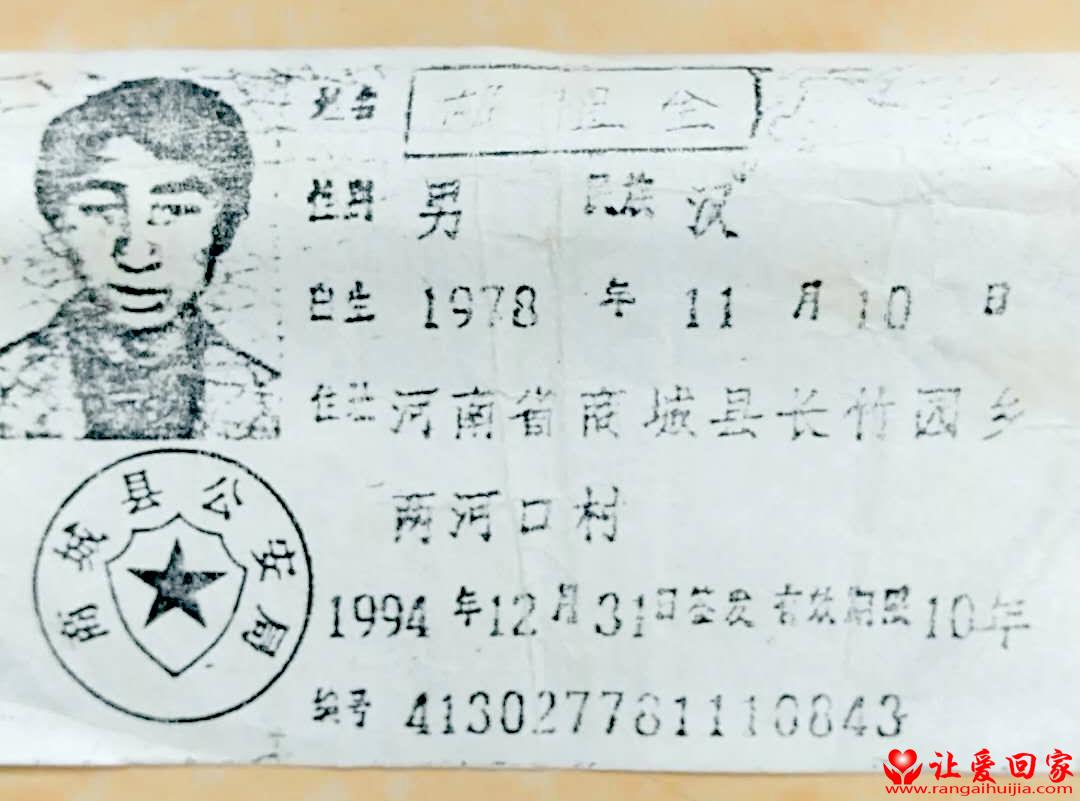 姓名 胡 全
性别 男 民族 汉
出生 1978 年 11 月 10 日
住址 河南省商城县长竹园乡
两河口村
1994 年 12 月 31 日签发 有效期限 10年
编号 413027781110843
商城县公安局
让爱回家
www.rangaihuijia.com